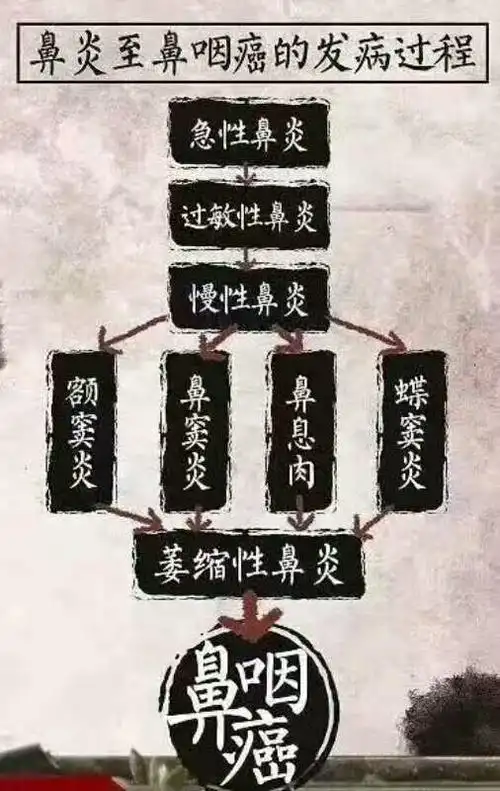 鼻炎至鼻咽癌的发病过程
急性鼻炎
过敏性鼻炎
慢性鼻炎
额窦炎
鼻窦炎
鼻息肉
蝶窦炎
萎缩性鼻炎
鼻咽癌